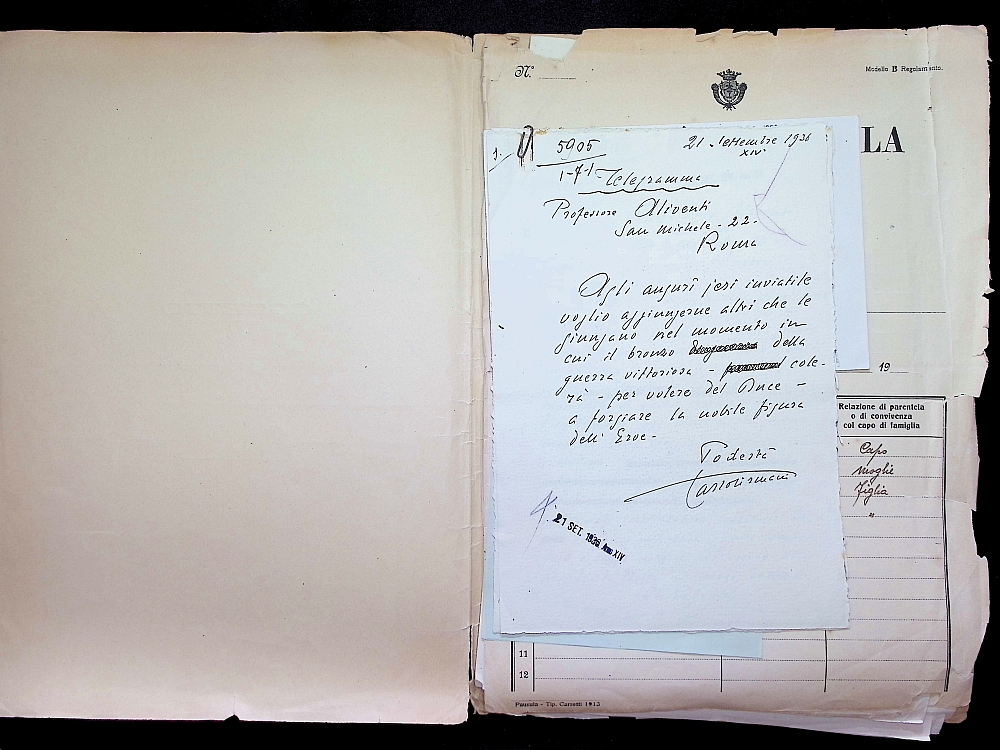 N.°
Modello B Regolamento.
LA
1.
5905
21 Settembre 1936
XIV°
1-71
Telegramma
Professore Aliventi
San Michele - 22 -
Roma
Agli auguri jeri inviatile
voglio aggiungerne altri che le
giungano nel momento in
cui il bronzo della
guerra vittoriosa - cole-
rà - per volere del Duce -
a forgiare la nobile figura
dell' Eroe -
Podestà
21 SET. 1936 Anno XIV
19
Relazione di parentela
o di convivenza
col capo di famiglia
Capo
moglie
figlia
"
11
12
Pausula - Tip. Carsetti 1913